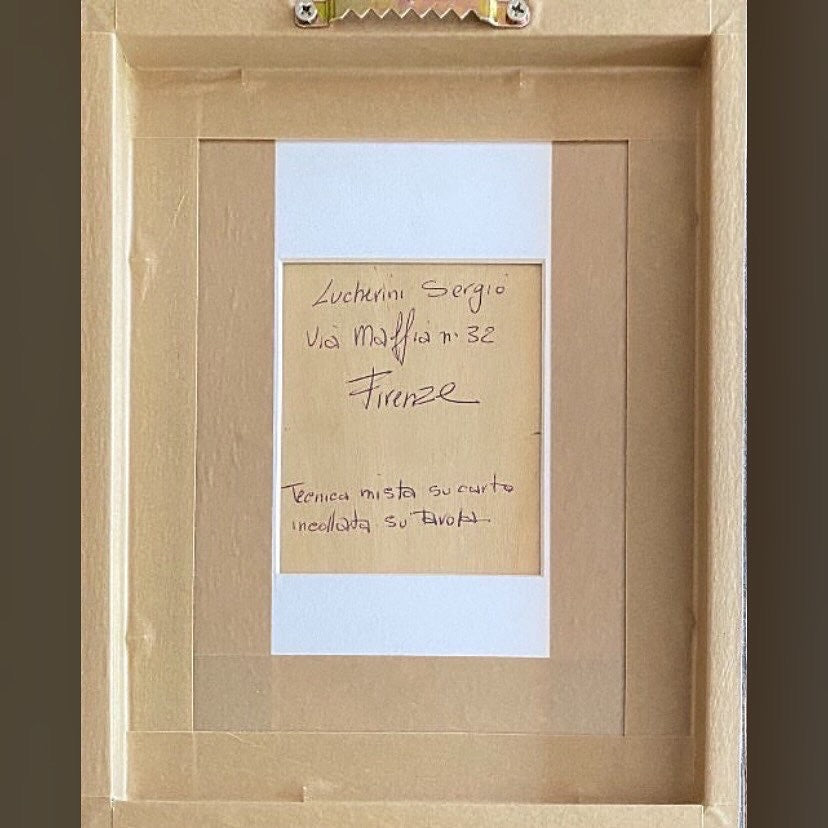 Lucherini Sergio
Via Maffia n. 32
Firenze
Tecnica mista su carta
incollata su Tavola